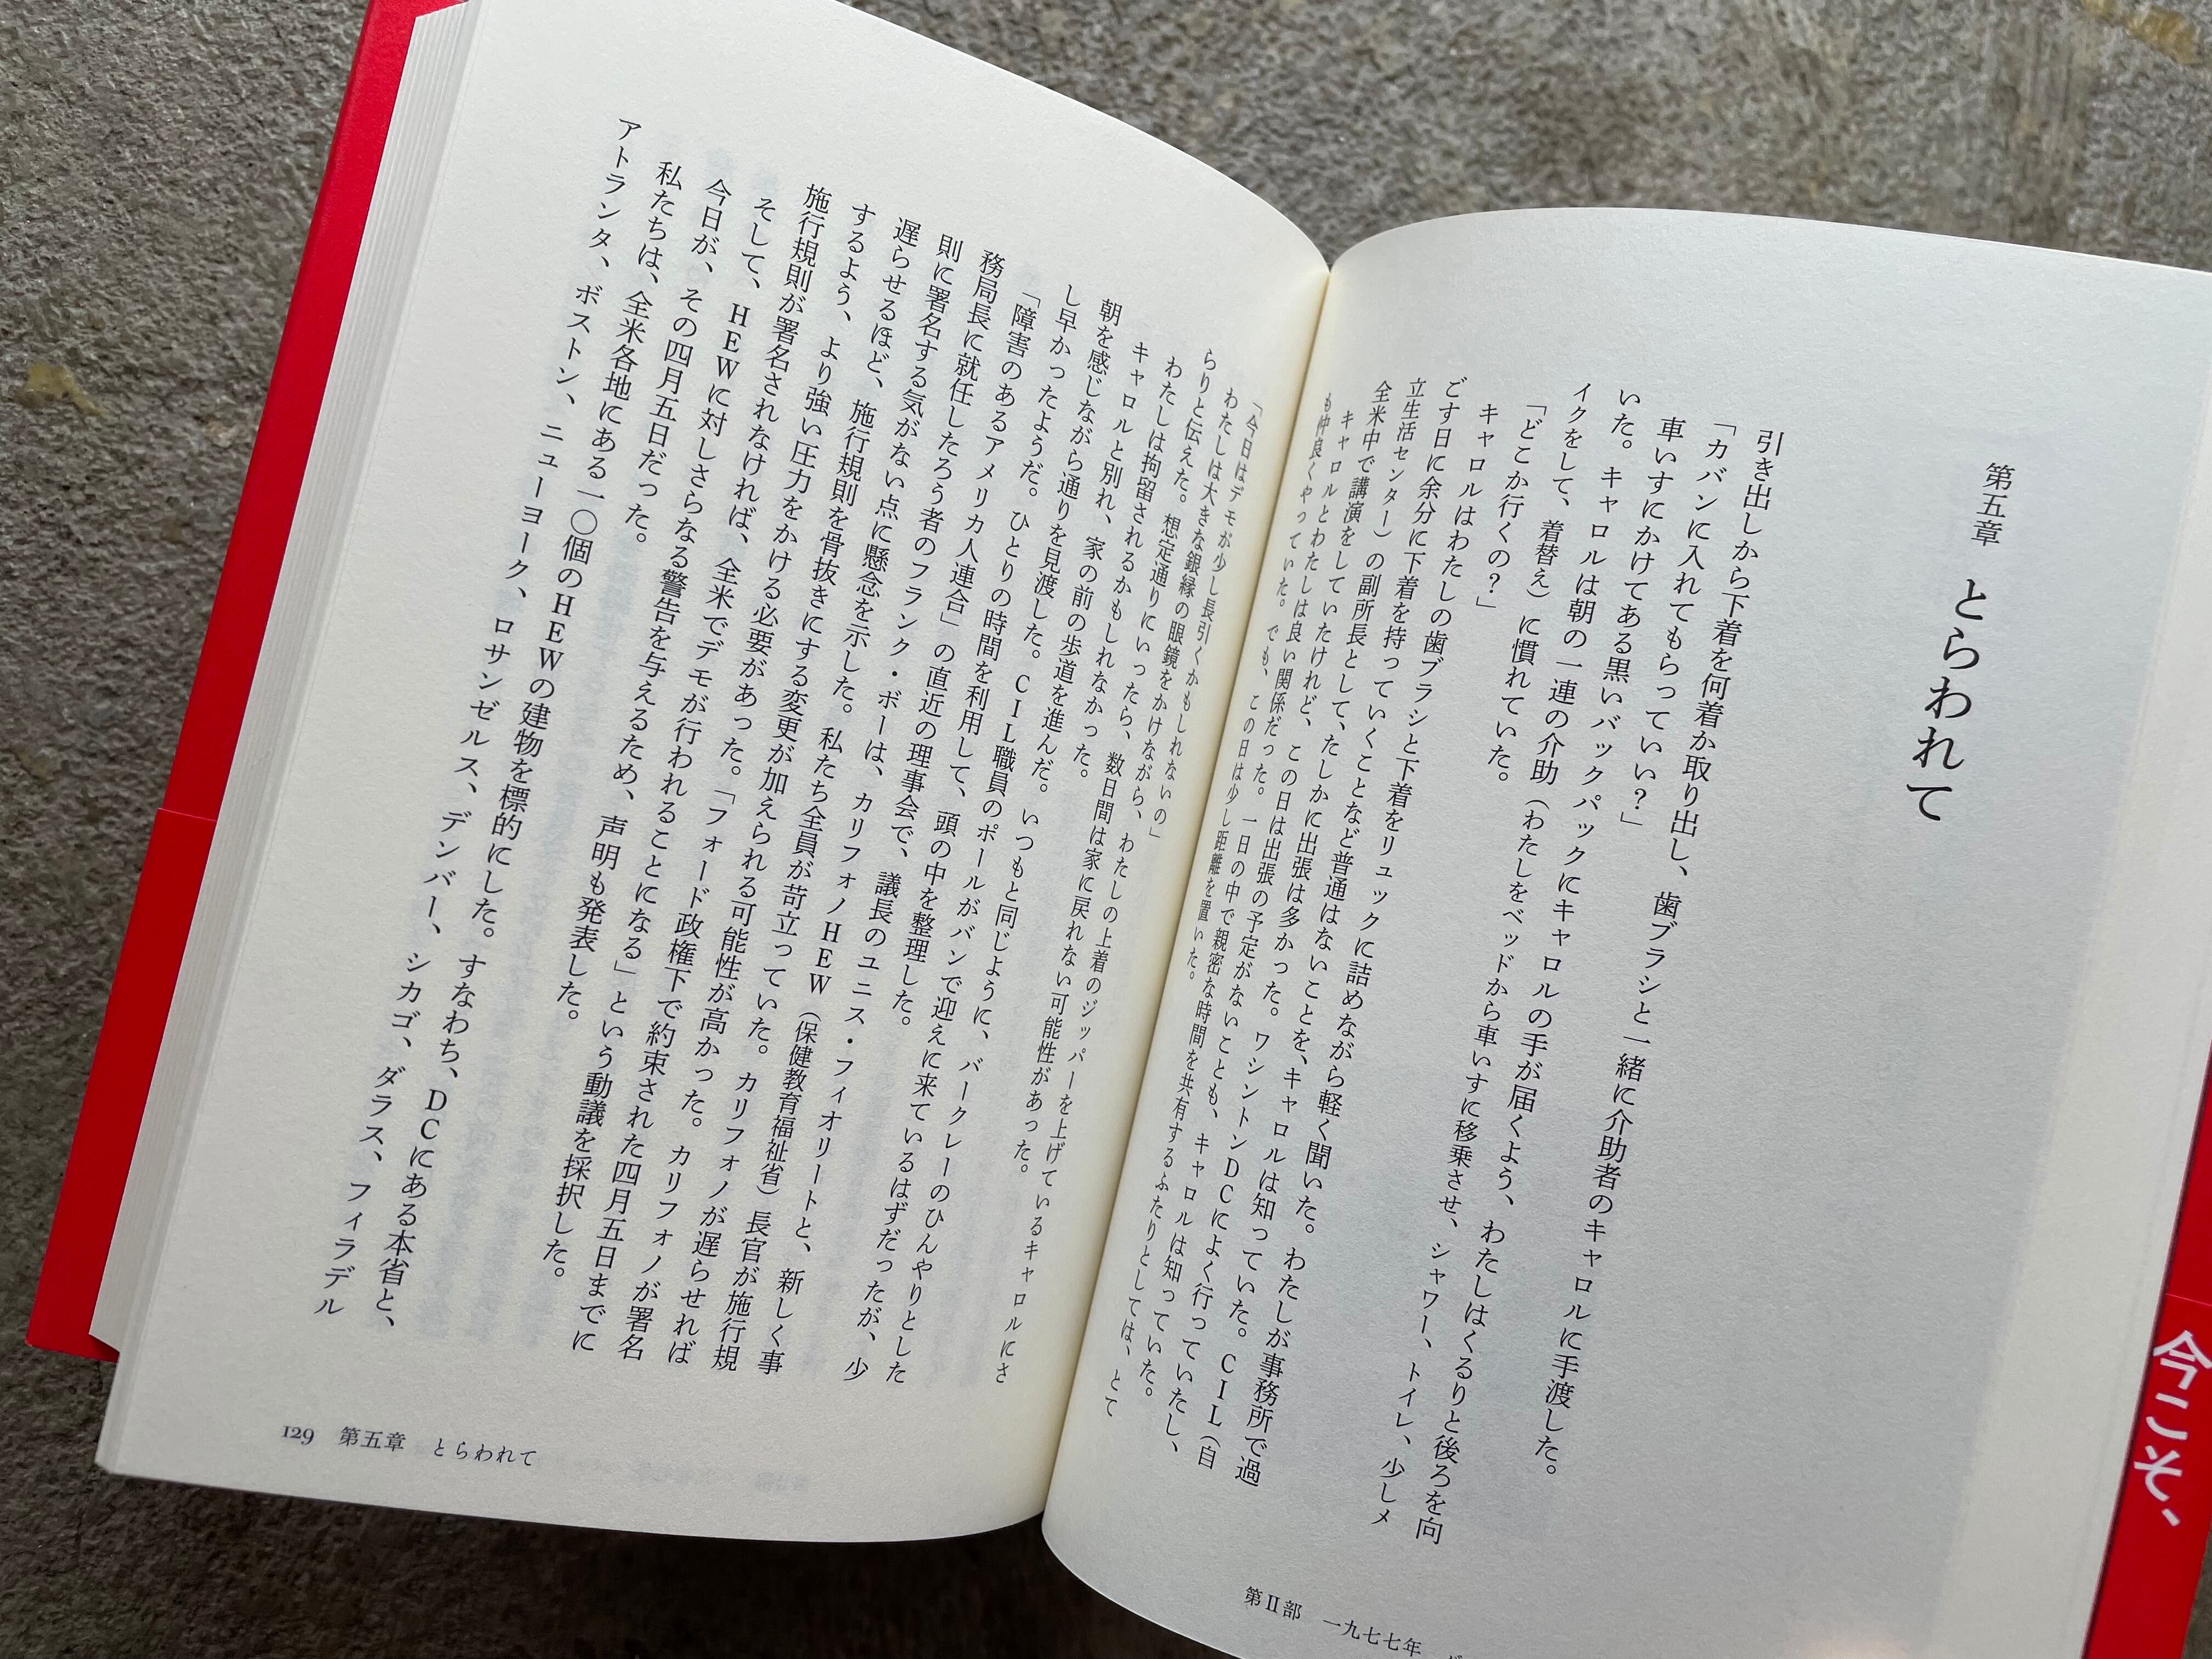 第五章　とらわれて
引き出しから下着を何着か取り出し、歯ブラシと一緒に介助者のキャロルに手渡した。
「カバンに入れてもらっていい？」
車いすにかけてある黒いバックパックにキャロルの手が届くよう、わたしはくるりと後ろを向
いた。キャロルは朝の一連の介助（わたしをベッドから車いすに移乗させ、シャワー、トイレ、少しメ
イクをして、着替え）に慣れていた。
「どこか行くの？」
キャロルはわたしの歯ブラシと下着をリュックに詰めながら軽く聞いた。わたしが事務所で過
ごす日に余分に下着を持っていくことなど普通はないことを、キャロルは知っていた。CIL（自
立生活センター）の副所長として、たしかに出張は多かった。ワシントンDCによく行っていたし、
全米中で講演をしていたけれど、この日は出張の予定がないことも、キャロルは知っていた。
キャロルとわたしは良い関係だった。一日の中で親密な時間を共有するふたりとしては、とて
も仲良くやっていた。でも、この日は少し距離を置いた。
「今日はデモが少し長引くかもしれないの」
わたしは大きな銀縁の眼鏡をかけながら、わたしの上着のジッパーを上げているキャロルにさ
らりと伝えた。想定通りにいったら、数日間は家に戻れない可能性があった。
わたしは拘留されるかもしれなかった。
キャロルと別れ、家の前の歩道を進んだ。いつもと同じように、バークレーのひんやりとした
朝を感じながら通りを見渡した。CIL職員のポールがバンで迎えに来ているはずだったが、少
し早かったようだ。ひとりの時間を利用して、頭の中を整理した。
「障害のあるアメリカ人連合」の直近の理事会で、議長のユニス・フィオリートと、新しく事
務局長に就任したろう者のフランク・ボーは、カリフォノHEW（保健教育福祉省）長官が施行規
則に署名する気がない点に懸念を示した。私たち全員が苛立っていた。カリフォノが遅らせれば
遅らせるほど、施行規則を骨抜きにする変更が加えられる可能性が高かった。カリフォノが署名
するよう、より強い圧力をかける必要があった。「フォード政権下で約束された四月五日までに
施行規則が署名されなければ、全米でデモが行われることになる」という動議を採択した。
そして、HEWに対しさらなる警告を与えるため、声明も発表した。
今日が、その四月五日だった。
私たちは、全米各地にある一〇個のHEWの建物を標的にした。すなわち、DCにある本省と、
アトランタ、ボストン、ニューヨーク、ロサンゼルス、デンバー、シカゴ、ダラス、フィラデル
129　第五章　とらわれて
第Ⅱ部　一九七七年
今こそ、